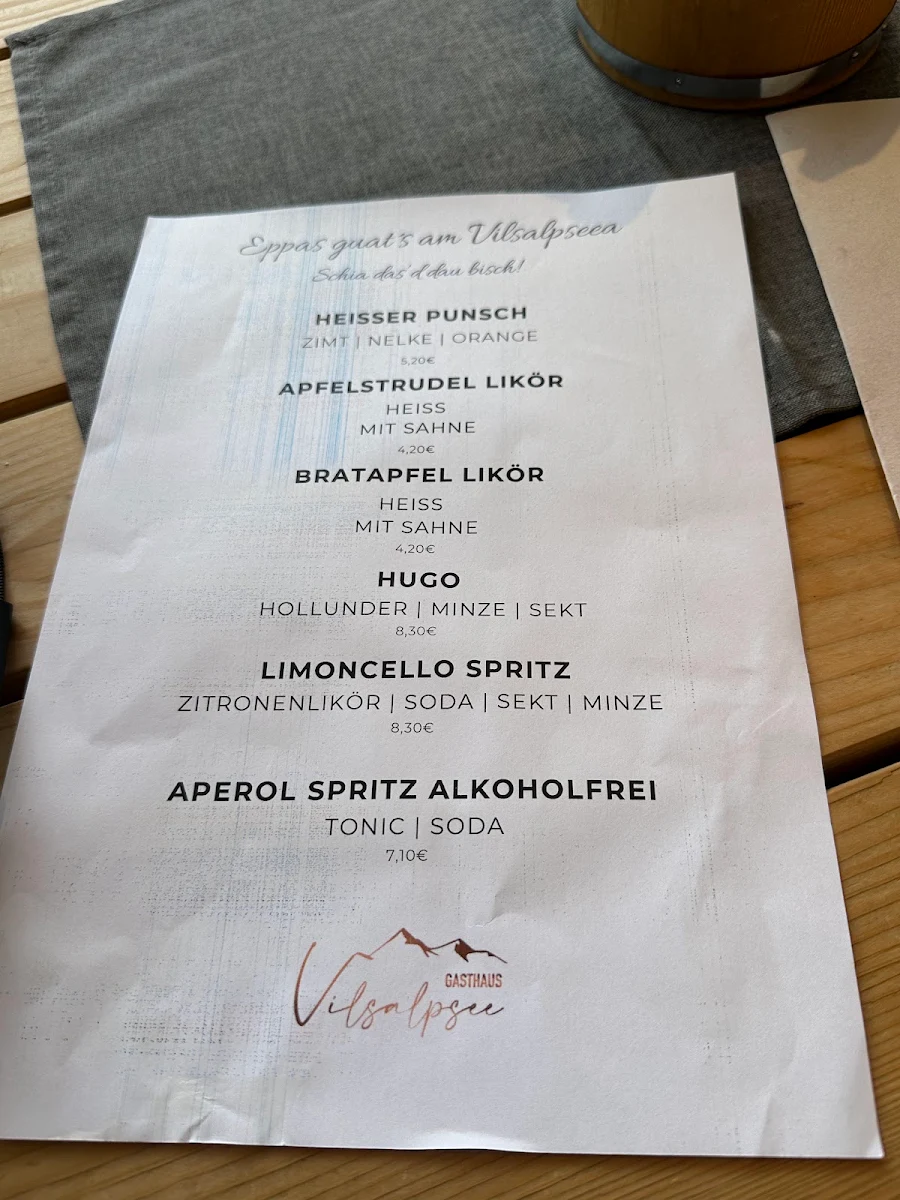 Eppas guat's am Vilsalpseea
Schia das'd dau bisch!
HEISSER PUNSCH
ZIMT | NELKE | ORANGE
5,20€
APFELSTRUDEL LIKÖR
HEISS
MIT SAHNE
4,20€
BRATAPFEL LIKÖR
HEISS
MIT SAHNE
4,20€
HUGO
HOLLUNDER | MINZE | SEKT
8,30€
LIMONCELLO SPRITZ
ZITRONENLIKÖR | SODA | SEKT | MINZE
8,30€
APEROL SPRITZ ALKOHOLFREI
TONIC | SODA
7,10€
GASTHAUS
Vilsalpsee